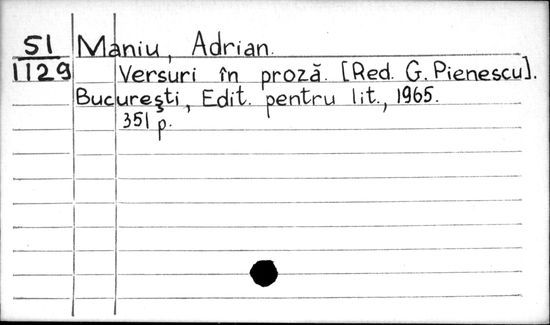 51 Maniu, Adrian.
1129 Versuri în proză. [Red. G. Pienescu].
Bucureşti, Edit. pentru lit., 1965.
351 p.